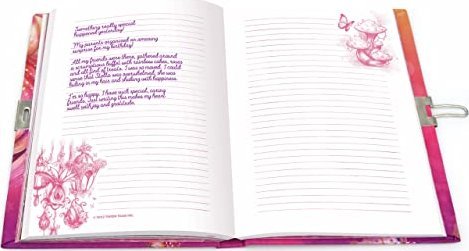 Something really special
happened yesterday!
My parents organized an amazing
surprise for my birthday!
All my friends were there, gathered around
a scrumptious buffet with rainbow cakes,
and all kind of treats. I was so moved, I could
sense that Stella was overwhelmed, she was
hiding in my hair and shaking with happiness.
I'm so happy. I have such special, caring
friends. Just writing this makes my heart
swell with joy and gratitude.